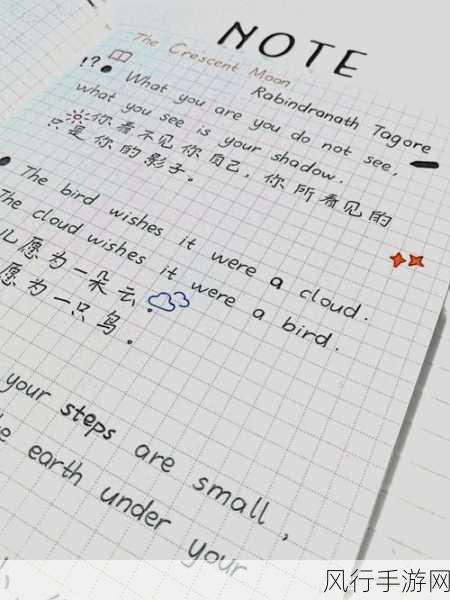 NOTE
The Crescent Moon
Rabindranath Tagore
!? What you are you do not see,
what you see is your shadow.
你看不见你自己，你所看见的
只是你的影子。
The bird wishes it were a cloud.
The cloud wishes it were a bird.
儿愿为一朵云。
愿为一只鸟。
your steps are small,
earth under your
风行手游网